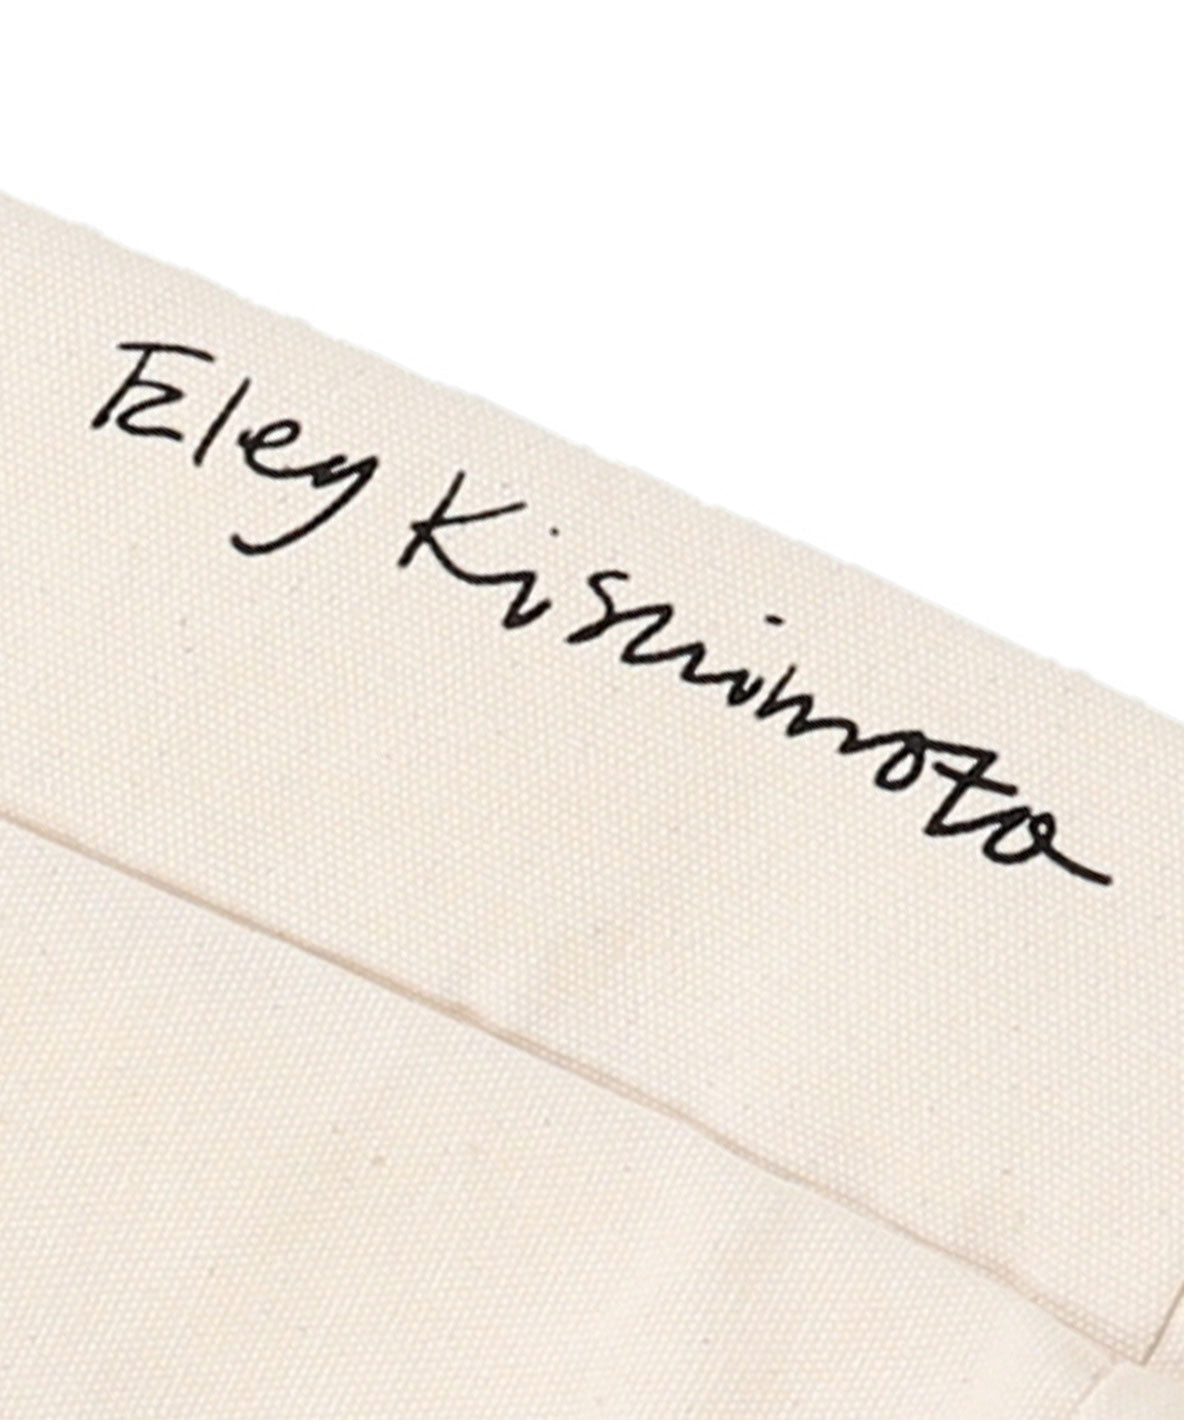 Eley Kishimoto